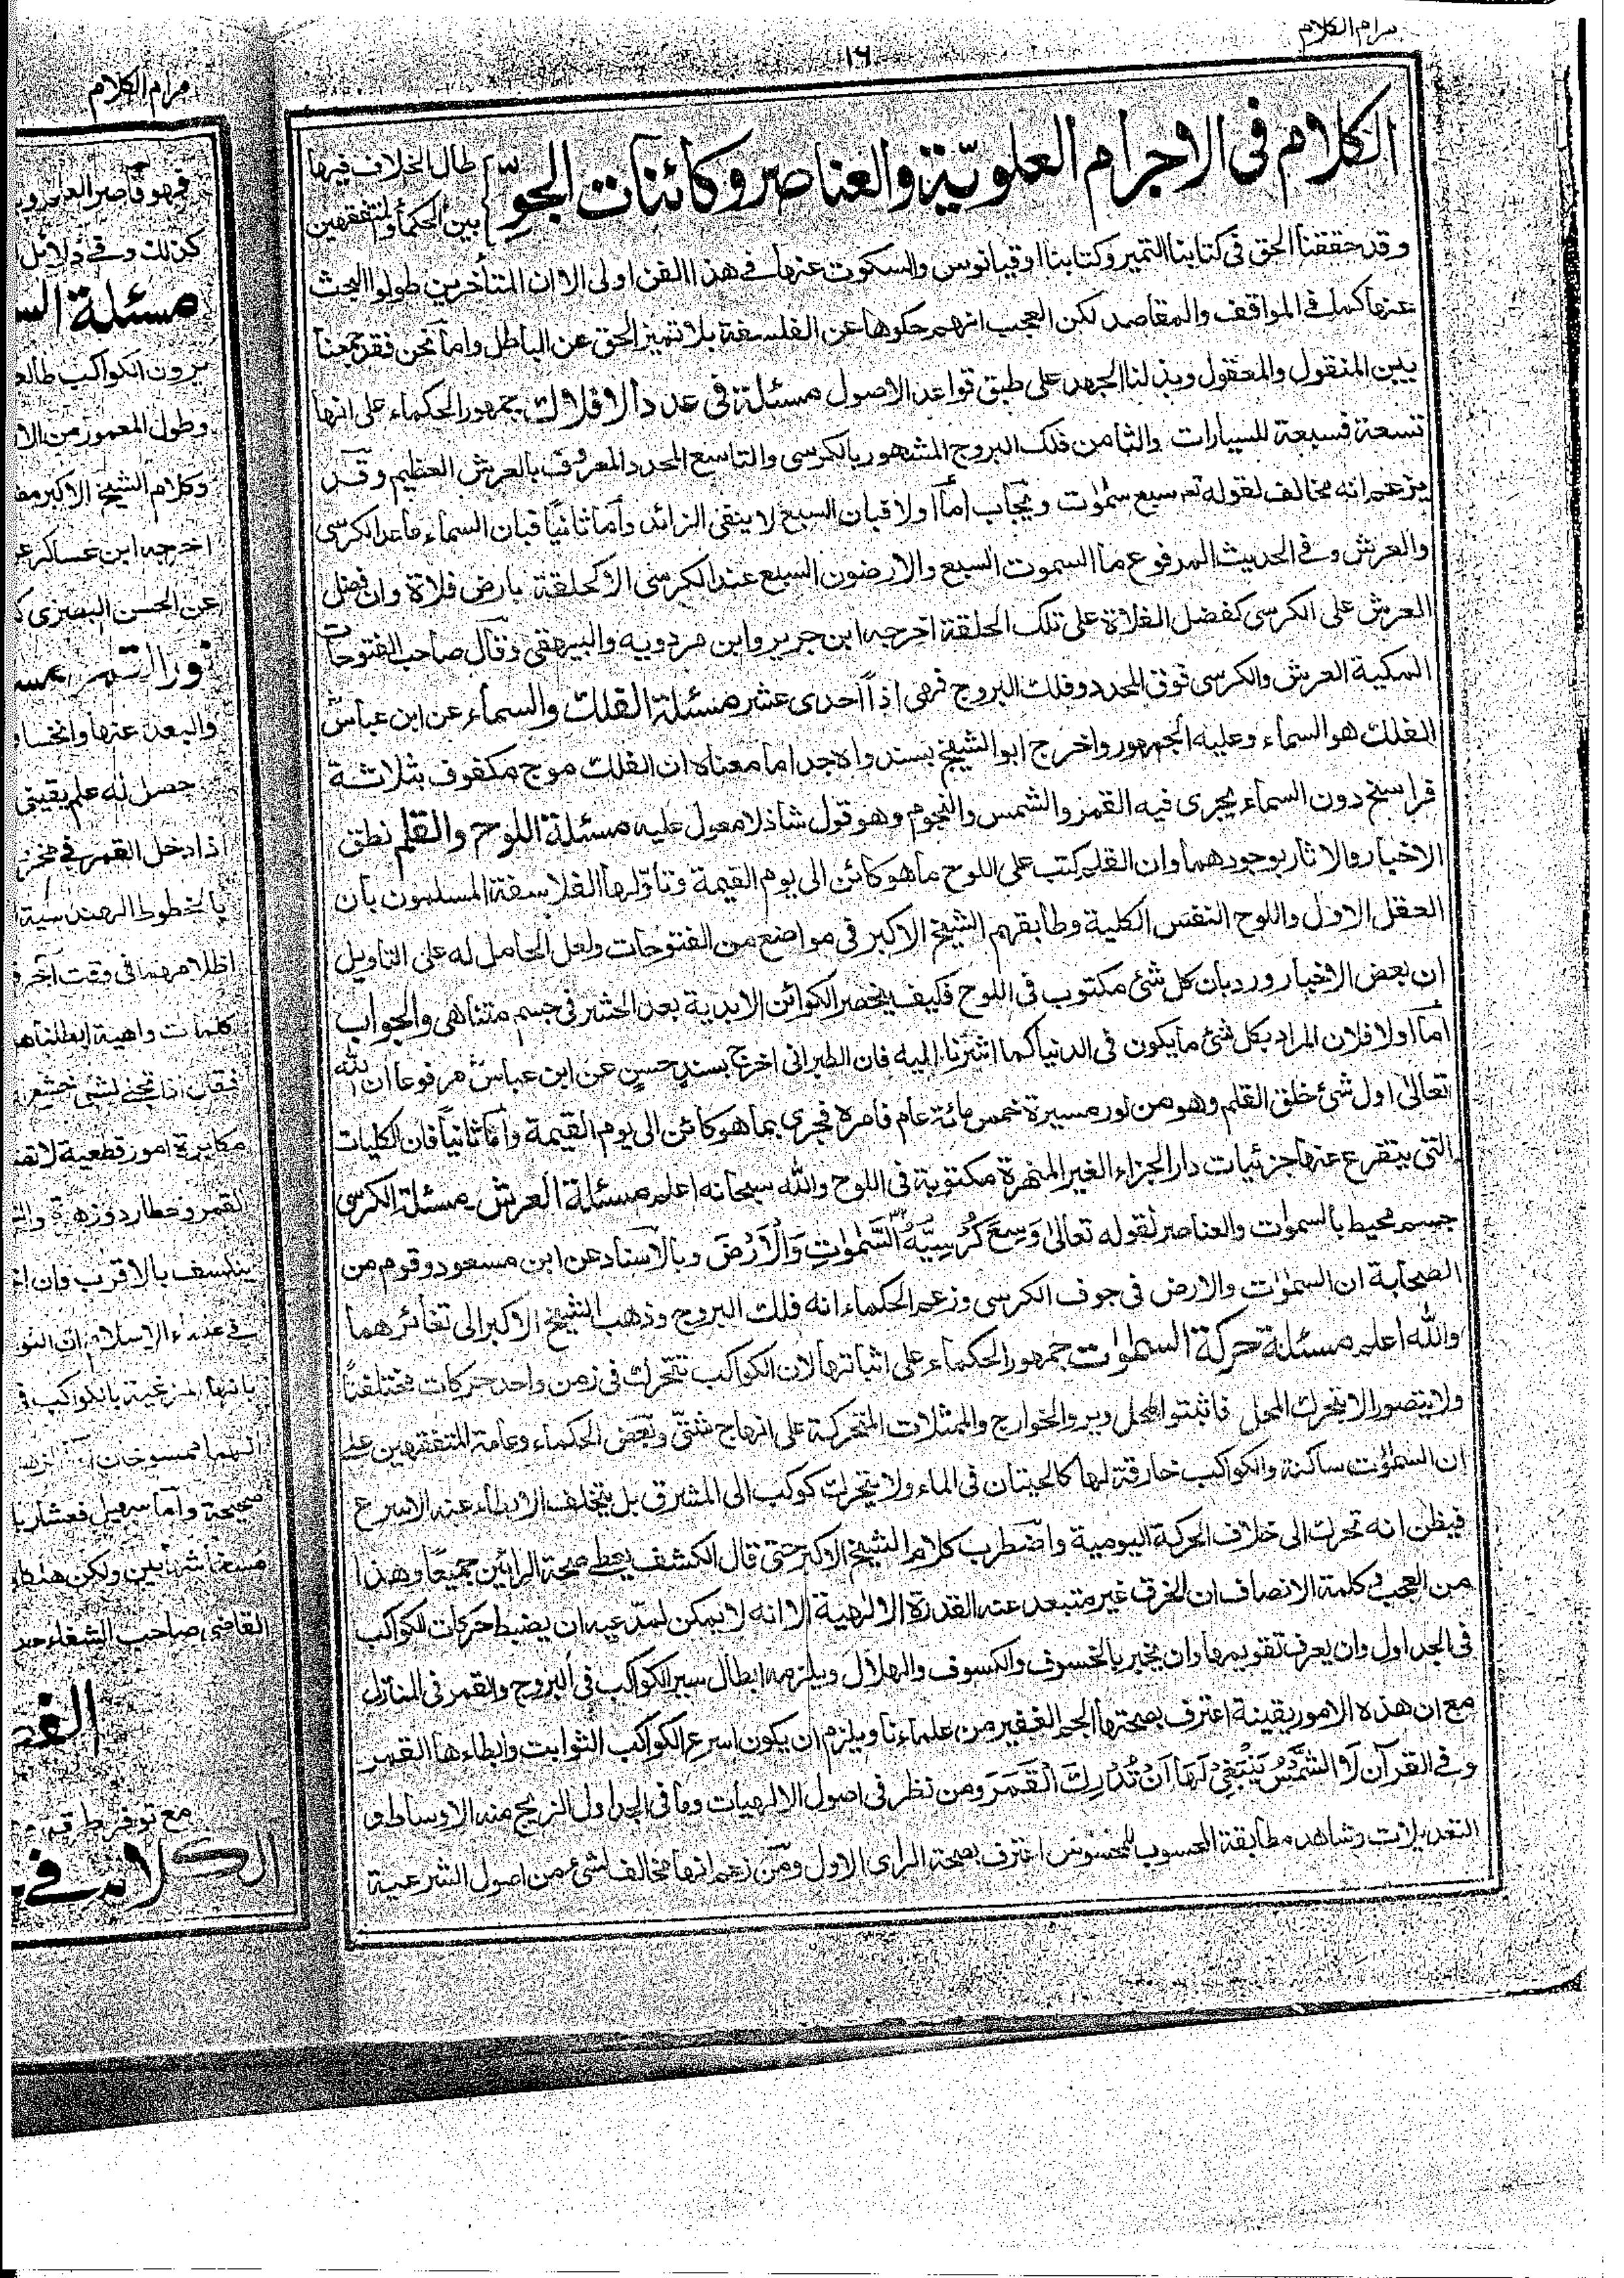 مرام الكلام
١٦
الكلام فى الاجرام العلويّة والعناصر وكائنات الجوّ طال الخلاف فيها
بين الحكماء والمتفقهين
وقد حققنا الحق فى كتابنا التمييز وكتابنا اوقيانوس والسكوت عنها فى هذا الفن اولى الا ان المتأخرين طولوا البحث
عنها كما فى المواقف والمقاصد لكن العجب انهم حكوها عن الفلسفة بلا تميز الحق عن الباطل واما نحن فقد جمعنا
بين المنقول والمعقول وبذلنا الجهد على طبق قواعد الاصول مسئلة فى عدد الافلاك جمهور الحكماء على انها
تسعة فسبعة للسيارات والثامن فلك البروج المشهور بالكرسى والتاسع المحدد المعروف بالعرش العظيم وقد
يزعم انه مخالف لقوله تع سبع سمٰوٰت ويجاب اما اولا فبان السبع لا ينفى الزائد واما ثانيا فبان السماء ما عدا الكرسى
والعرش وفى الحديث المرفوع ما السموت السبع والارضون السبع عند الكرسى الا كحلقة بارض فلاة وان فضل
العرش على الكرسى كفضل الفلاة على تلك الحلقة اخرجه ابن جرير وابن مردويه والبيهقى وقال صاحب الفتوحات
المكية العرش والكرسى فوق المحدد وفلك البروج فهى اذاً احدى عشر مسئلة الفلك والسماء عن ابن عباس
الفلك هو السماء وعليه الجمهور واخرج ابو الشيخ بسند واه جدا ما معناه ان الفلك موج مكفوف بثلاثة
فراسخ دون السماء يجرى فيه القمر والشمس والنجوم وهو قول شاذ لا معول عليه مسئلة اللوح والقلم نطق
الاخبار والاثار بوجودهما وان القلم كتب على اللوح ما هو كائن الى يوم القيمة وتأولها الفلاسفة المسلمون بأن
العقل الاول واللوح النفس الكلية وطابقهم الشيخ الاكبر فى مواضع من الفتوحات ولعل الحامل له على التاويل
ان بعض الاخبار ورد بان كل شئ مكتوب فى اللوح فكيف ينحصر الكوائن الابدية بعد الحشر فى جسم متناهى والجواب
اما اولا فلان المراد بكل شئ ما يكون فى الدنيا كما اشرنا اليه فان الطبرانى اخرج بسند حسن عن ابن عباس مرفوعا ان الله
تعالى اول شئ خلق القلم وهو من نور مسيرة خمس مائة عام فامره فجرى بما هو كائن الى يوم القيمة واما ثانياً فان الكليات
التى يتفرع عنها جزئيات دار الجزاء الغير المنهرة مكتوبة فى اللوح والله سبحانه اعلم مسئلة العرش مسئلة الكرسى
جسم محيط بالسمٰوات والعناصر لقوله تعالى وَسِعَ كُرْسِيُّهُ السَّمٰوٰتِ وَالْاَرْضَ وبالاسناد عن ابن مسعود وقوم من
الصحابة ان السمٰوٰت والارض فى جوف الكرسى وزعم الحكماء انه فلك البروج وذهب الشيخ الاكبر الى تغائرهما
والله اعلم مسئلة حركة السمٰوٰت جمهور الحكماء على اثباتها لان الكواكب تتحرك فى زمن واحد حركات مختلفتاً
ولا يتصور الا بتحرك المحل فاثبتوا المحل وبر والخوارج والممثلات المتحركة على انهاج شتّى وبعض الحكماء وعامة المتفقهين على
ان السمٰوٰت ساكنة والكواكب خارقة لها كالحيتان فى الماء ولا يتحرك كوكب الى المشرق بل يتخلف الابطاء عنه الاسرع
فيظن انه تحرك الى خلاف الحركة اليومية واضطرب كلام الشيخ الاكبر حتى قال الكشف يعطى صحة الرائين جميعًا وهذا
من العجب فى كلمة الانصاف ان الخرق غير متبعد عند القدرة الالهية الا انه لا يمكن لمدّعيه ان يضبط حركات الكواكب
فى الجداول وان يعرف تقويمها وان يخبر بالخسوف والكسوف والهلال ويلزمه ابطال سير الكواكب فى البروج والقمر فى المنازل
مع ان هذه الامور يقينة اعترف بصحتها الجم الغفير من علماءنا ويلزم ان يكون اسرع الكواكب الثوابت وابطاءها القمر
وفى القرآن لَا الشَّمْسُ يَنْبَغِيْ لَهَا اَنْ تُدْرِكَ الْقَمَرَ ومن نظر فى اصول الالهيات وما فى الجداول الزيج منه الاوساط و
التعديلات وشاهد مطابقة المحسوب للمحسوس اعترف بصحة الراى الاول ومن زعم انها مخالف لشئ من اصول الشرعية
مرام الكلام
كذلك وفى دلائل
مسئلة
يرون الكواكب
وطول المعمور من
وكلام الشيخ الاكبر
اخرجه ابن عساكر
عن الحسن البصرى
نور
والبعد عنها
حصل له علم يقينى
اذا دخل القمر فى
بالخطوط الهندسية
فى وقت آخر
كلمات واهية
مكابرة امور قطعية
القمر وعطارد وزهرة
ينكسف بالاقرب وان
بالكواكب
صحيحة واما سهيل
ولكن
القاضى صاحب الشفاء
مع توفر
الكلام فى